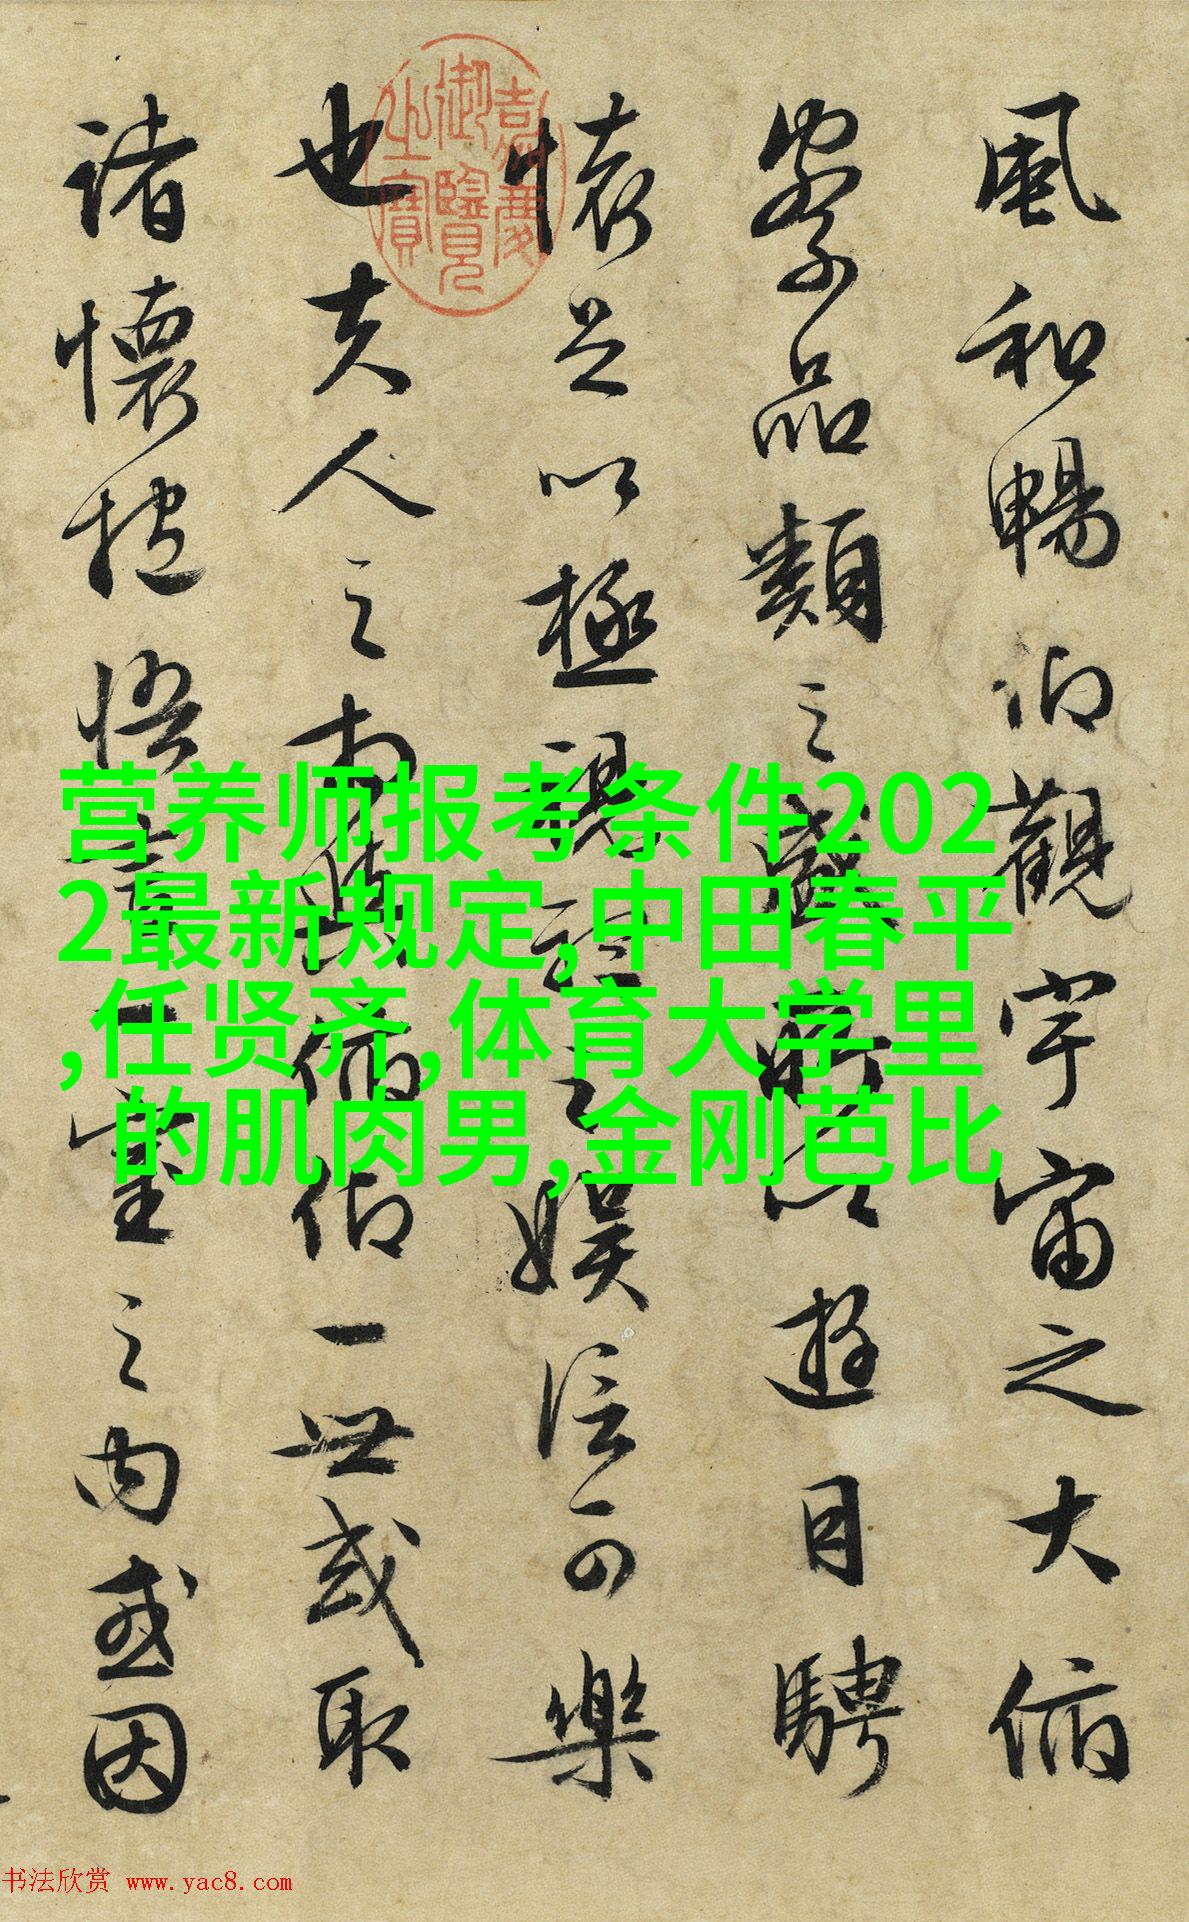 風和暢仰觀宇宙之大俯
察品類之盛所以遊目騁
懷足以極視聽之娛信可樂
也夫人之相與俯仰一世或取
諸懷抱悟言一室之內或因
嘉慶
御覽
之寶
营养师报考条件202
2最新规定,中田春平
,任贤齐,体育大学里
的肌肉男,金刚芭比
书法欣赏 www.yac8.com